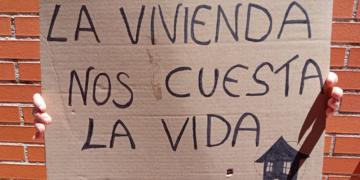 LA VIVIENDA
NOS CUESTA
LA VIDA